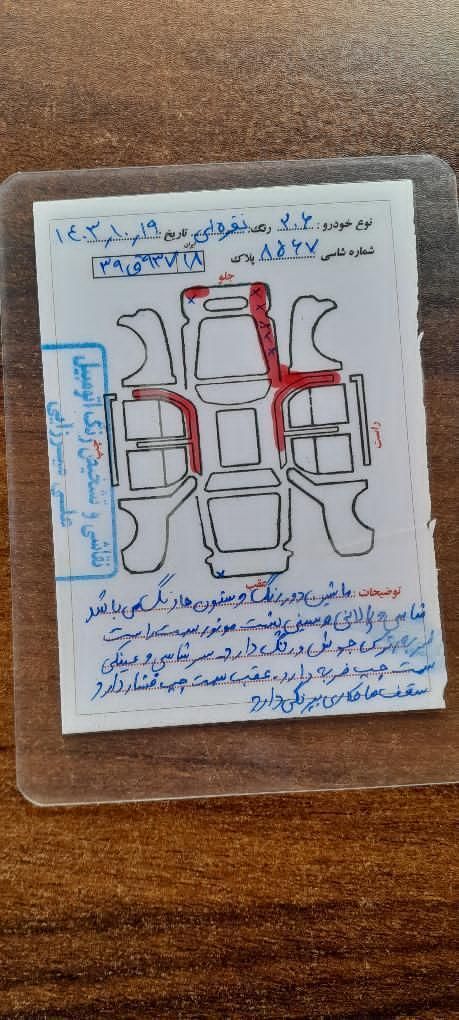 نوع خودرو: ۲۰۶ رنگ: نقره‌ای تاریخ: ۱۴۰۳,۱۰,۱۹
شماره شاسی ۸۵۶۷ پلاک ایران ۱۸ ۹۳۷ق۳۹
جلو
راست
چپ
نقاشی و تشخیص رنگ اتومبیل
علی میرزایی
عقب
توضیحات: ماشین دور رنگ و ستون ها رنگ می باشد
شاسی و پالانی و سینی پشت موتور سمت راست
ضربه جوش و رنگ دارد سر شاسی و عینکی
سمت چپ ضربه دارد. عقب سمت چپ فشار دارد
سقف صافکاری بیرنگی دارد